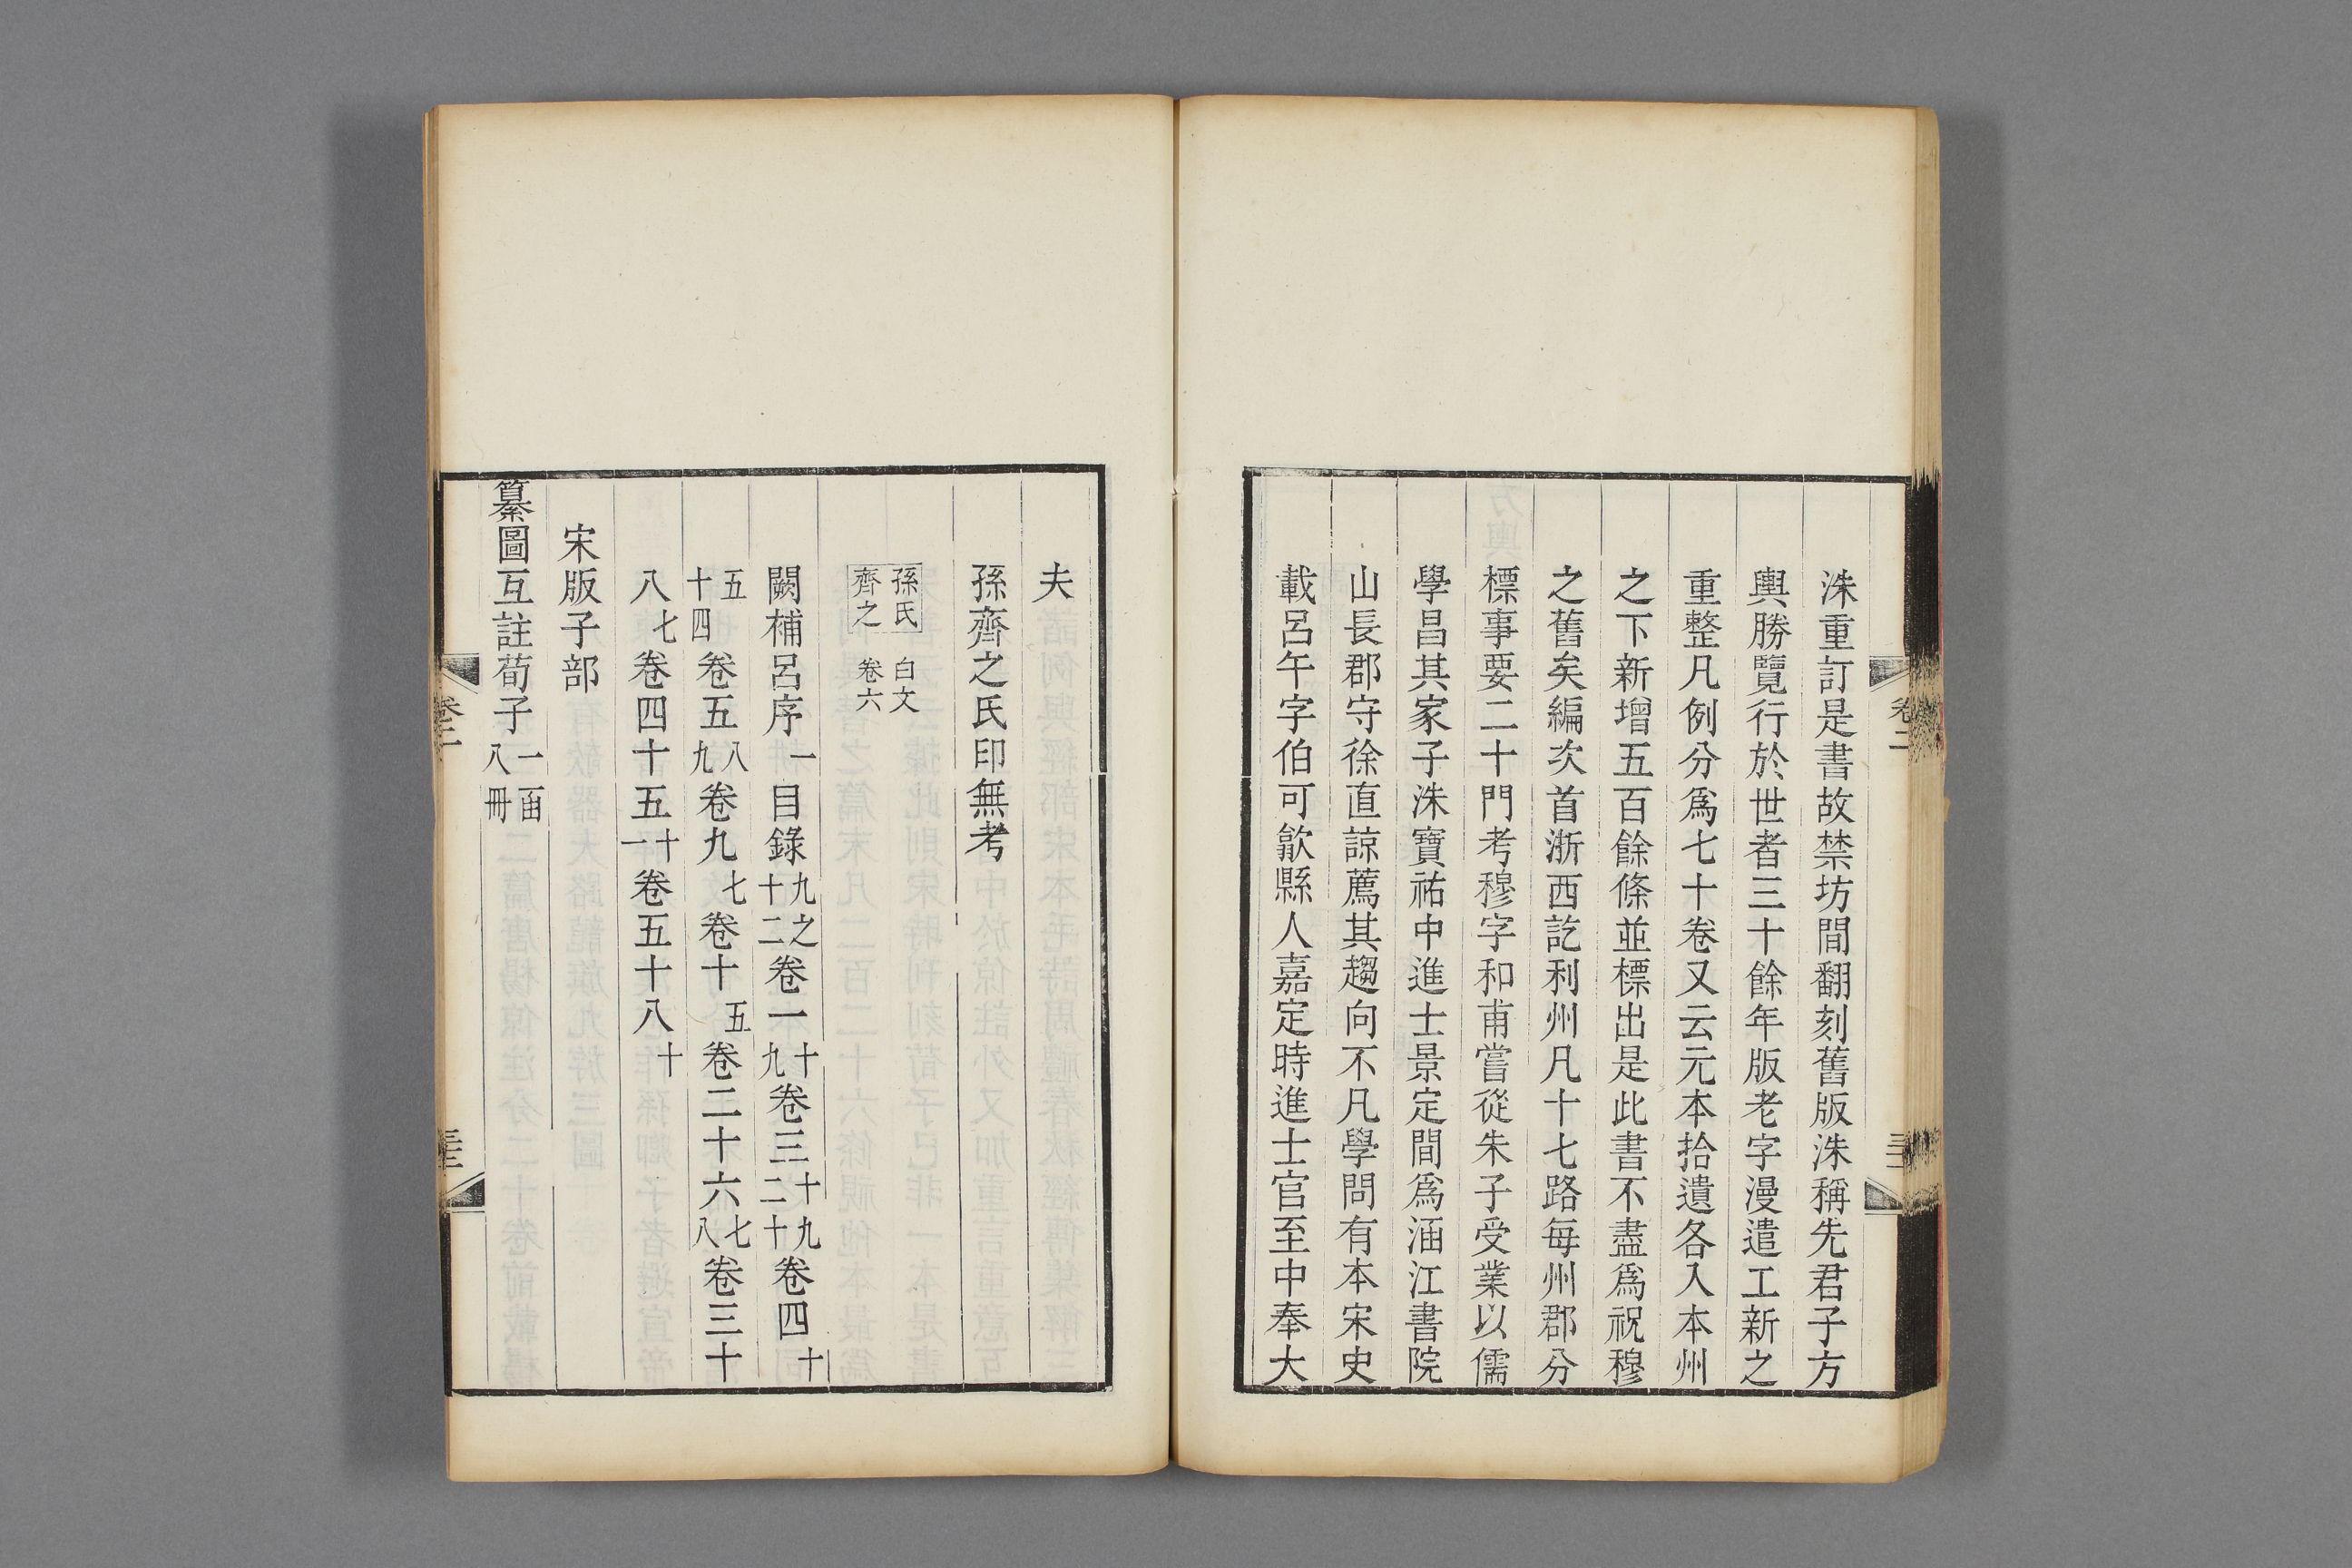 洙重訂是書故禁坊間翻刻舊版洙稱先君子方
輿勝覽行於世者三十餘年版老字漫遣工新之
重整凡例分爲七十卷又云元本拾遺各入本州
之下新增五百餘條並標出是此書不盡爲祝穆
之舊矣編次首浙西訖利州凡十七路每州郡分
標事要二十門考穆字和甫嘗從朱子受業以儒
學昌其家子洙寶祐中進士景定間爲涵江書院
山長郡守徐直諒薦其趨向不凡學問有本宋史
載呂午字伯可歙縣人嘉定時進士官至中奉大
夫
孫齊之氏印無考
孫氏齊之 白文卷六
闕補呂序一目錄九之十二卷一十九卷三十二九十卷四十
五十四卷五八九卷九七卷十五卷二十六七八卷三十
八七卷四十五十一卷五十八十
宋版子部
纂圖互註荀子一函八冊
卷二